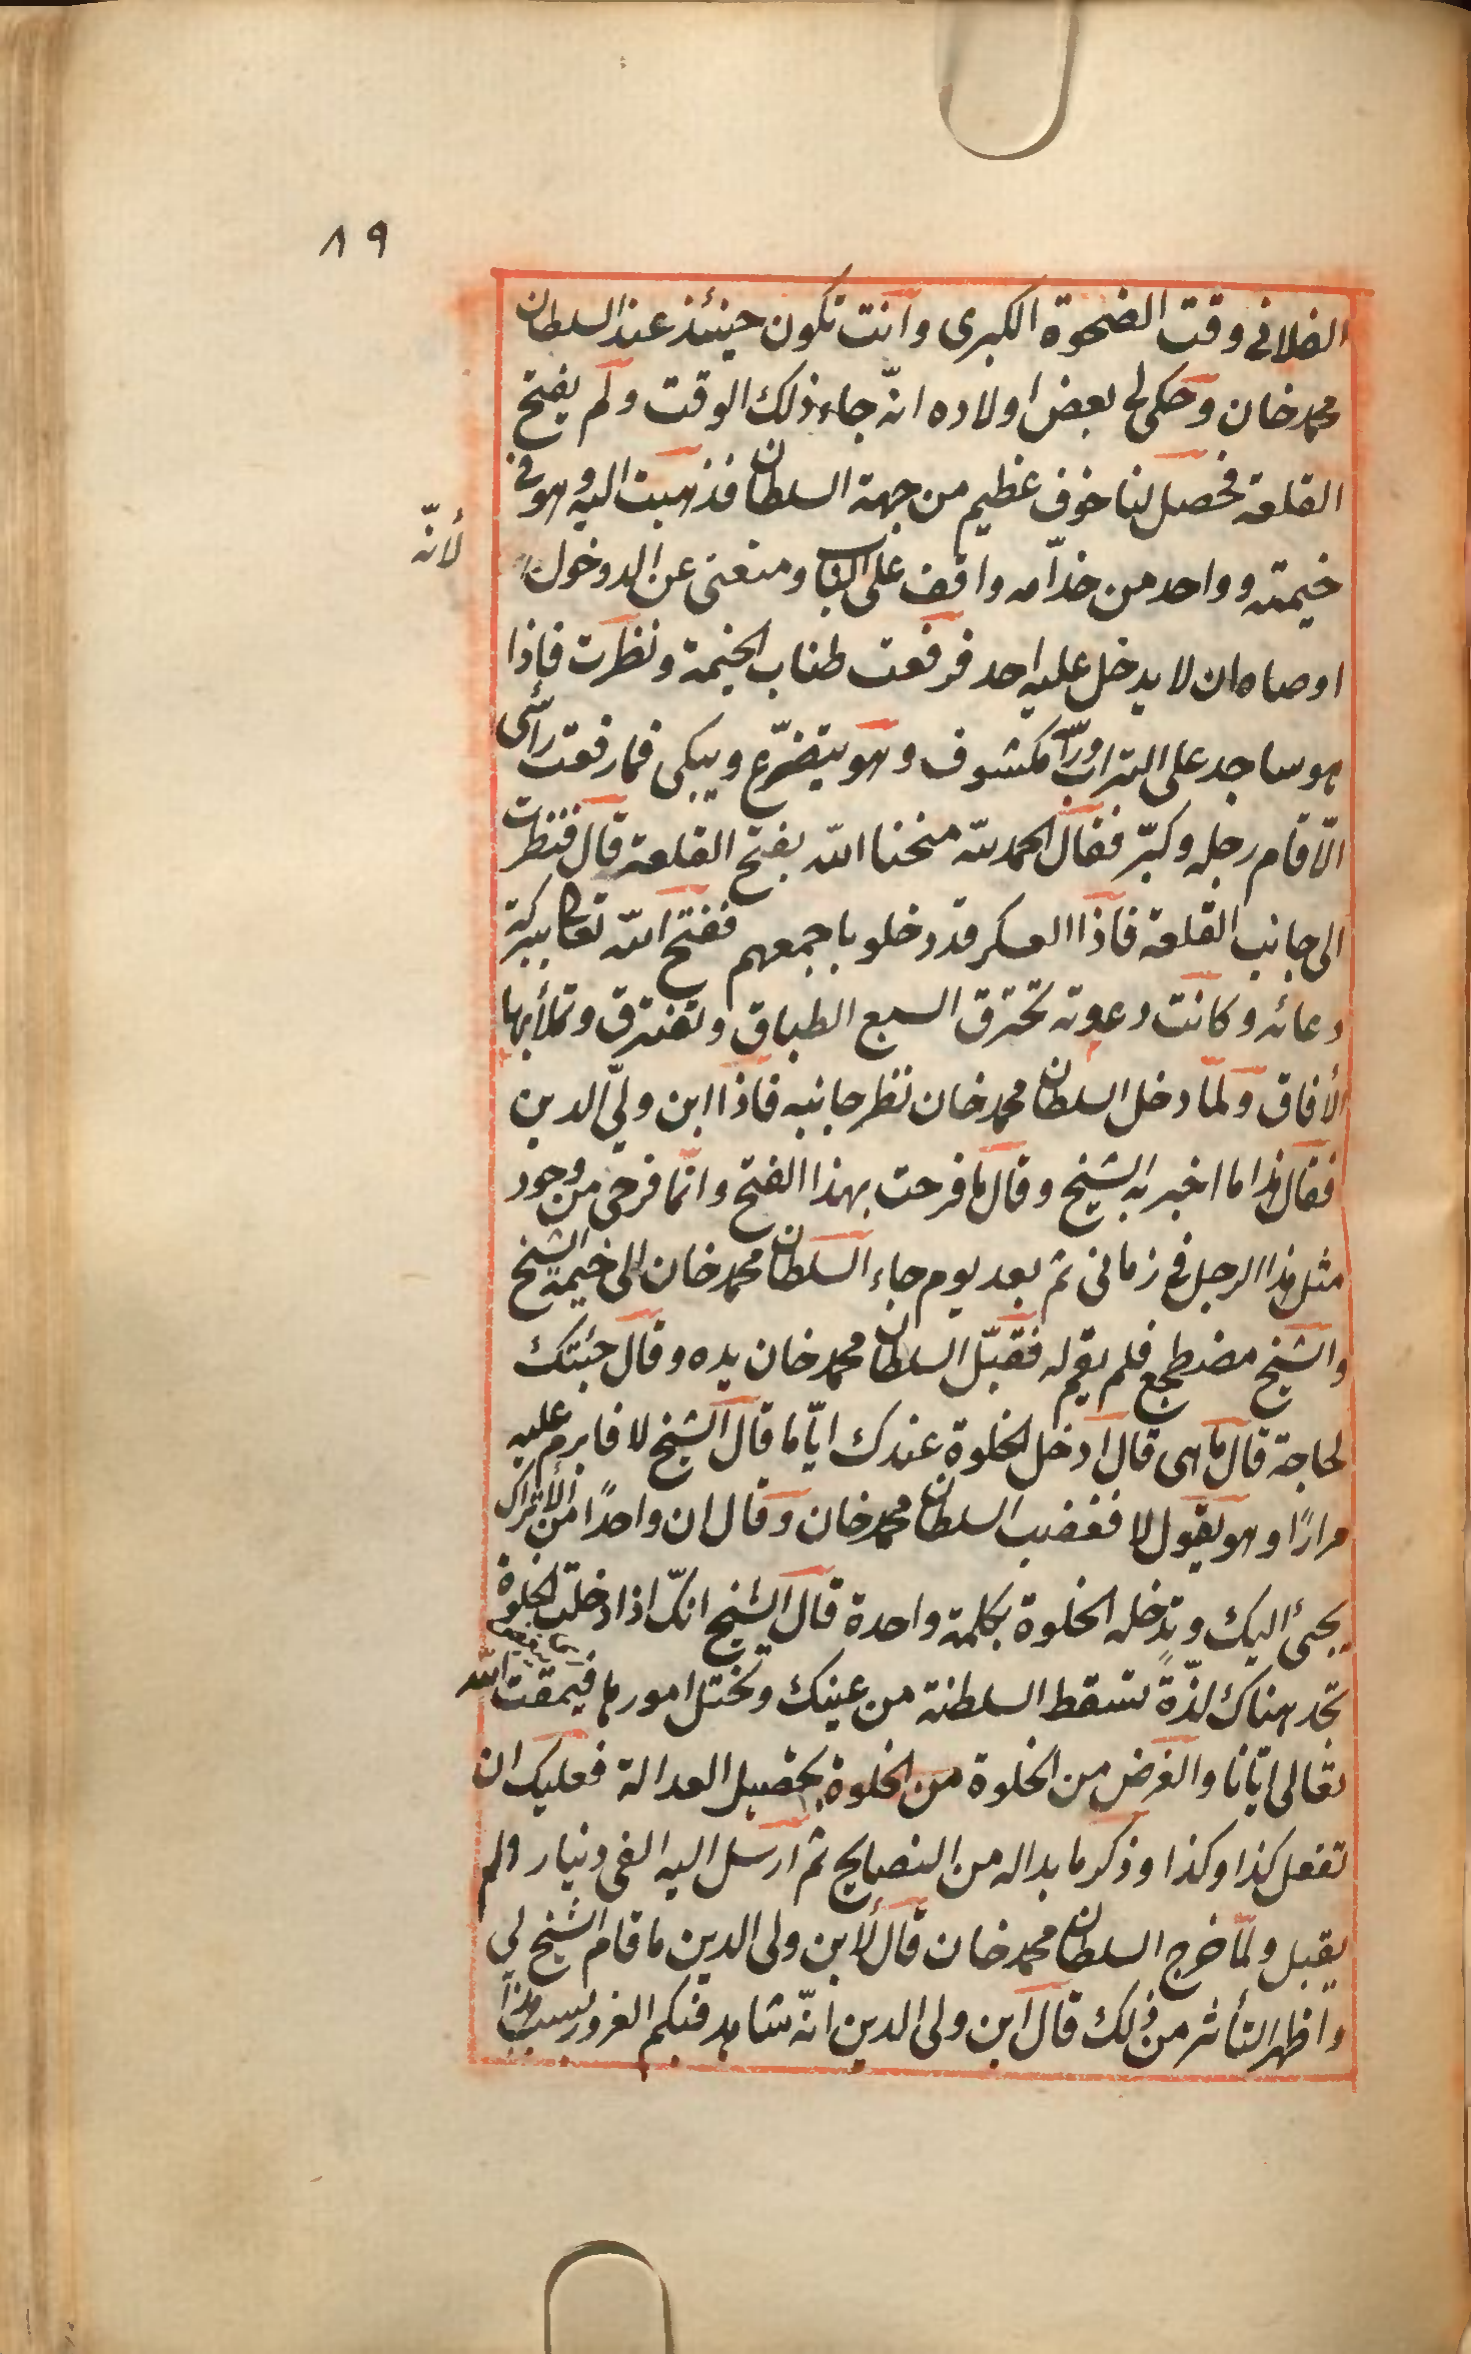 ٨٩
الفلانى وقت الضحوة الكبرى وانت تكون حينئذ عند السلطان
محمد خان وحكى لى بعض اولاده انّه جاء ذلك الوقت ولم يفتح
القلعة فحصل لنا خوف عظيم من جهة السلطان فذهبت اليه وهو فى
خيمته وواحد من خدّامه واقف على الباب ومنعنى عن الدوخول
لأنّه
اوصاه ان لا يدخل عليه احد فرفعت طناب الخيمة ونظرت فاذا
هو ساجد على التراب ورأسه مكشوف وهو يتضرّع ويبكى فما رفعت رأسى
الّا قام رجله وكبّر فقال الحمد للّه منحنا اللّه بفتح القلعة قال فنظرت
الى جانب القلعة فاذا العسكر قد دخلو باجمعهم ففتح اللّه تعا ببركة
دعائه وكانت دعوته تخترق السبع الطباق وتفترق وتملأ بها
الأفاق ولمّا دخل السلطان محمد خان نظر جانبه فاذا ابن ولىّ الدين
فقال هذا ما اخبر به الشيخ وقال ما فرحت بهذا الفتح وانّما فرحى من وجود
مثل هذا الرجل فى زمانى ثم بعد يوم جاء السلطان محمد خان الى خيمة الشيخ
والشيخ مضطجع فلم يقم له فقبّل السلطان محمد خان يده وقال جئتك
لحاجة قال ما هى قال ادخل الخلوة عندك ايّاما قال الشيخ لا فابرم عليه
مرارًا وهو يقول لا فغضب السلطان محمد خان وقال ان واحدًا من الأتراك
يجئ اليك وتدخله الخلوة بكلمة واحدة قال الشيخ انّك اذا دخلت الخلوة
تجد هناك لذّةً تسقط السلطنة من عينك وتختل امورها فيمقت اللّه
تعالى ايّانا والغرض من الخلوة من الخلوة تحصيل العدالة فعليك ان
تفعل كذا وكذا وذكر ما بدا له من النصايح ثم ارسل اليه الفى دينار ولم
يقبل ولمّا خرج السلطان محمد خان قال لأبن ولى الدين ما قام الشيخ لى
واظهر التأثر من ذلك قال ابن ولى الدين انّه شاهد فيكم الغرور بسبب هذا